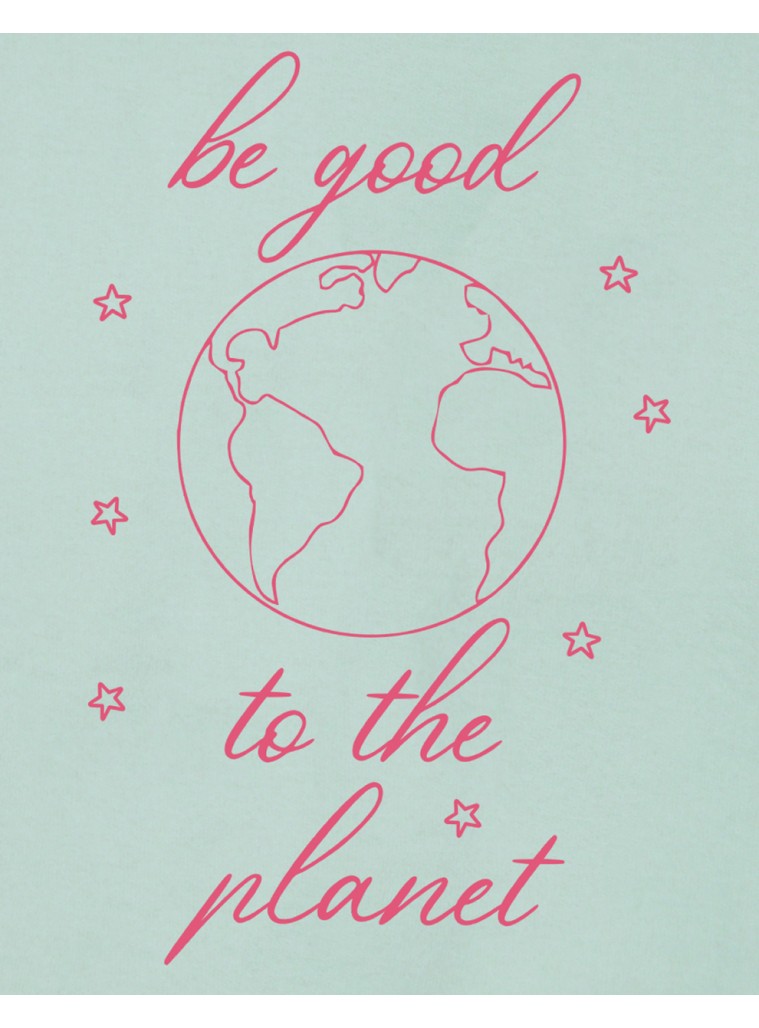 be good
to the
planet